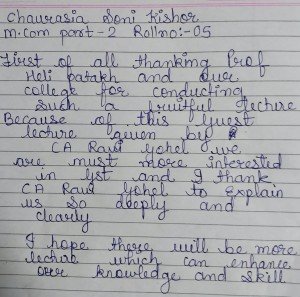 Chaurasia Soni Kishor
M.com part-2 Rollno:-05
First of all thanking Prof
Heli patakh and our
college for conducting
such a fruitful lecture
Because of this guest
lecture given by
CA Ravi Gohel we
are must more interested
in gst and I thank
CA Ravi Gohel to explain
us so deeply and
clearly
I hope there will be more
lecture which can enhance
our knowledge and skill